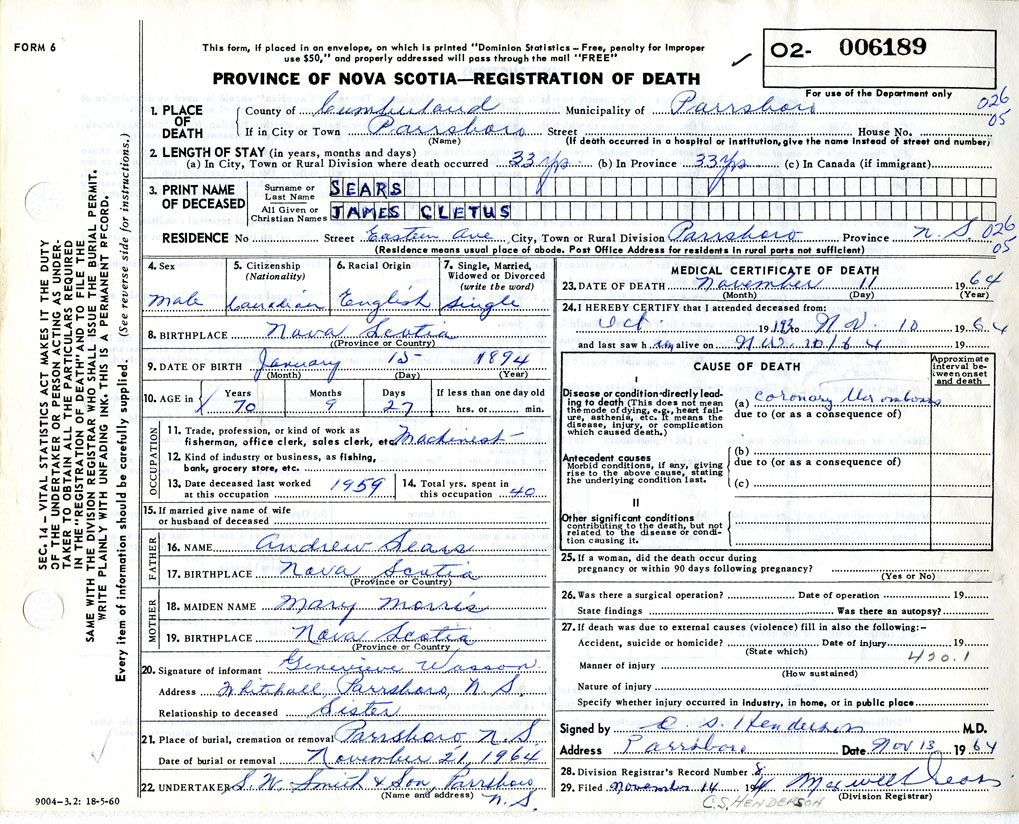 FORM 6
This form, if placed in an envelope, on which is printed "Dominion Statistics – Free, penalty for improper
use $50," and properly addressed will pass through the mail "FREE"
PROVINCE OF NOVA SCOTIA—REGISTRATION OF DEATH
✓
O2- 006189
For use of the Department only
026
05
SEC. 14 – VITAL STATISTICS ACT MAKES IT THE DUTY
OF THE UNDERTAKER OR PERSON ACTING AS UNDER-
TAKER TO OBTAIN ALL THE PARTICULARS REQUIRED
IN THE "REGISTRATION OF DEATH" AND TO FILE THE
SAME WITH THE DIVISION REGISTRAR WHO SHALL ISSUE THE BURIAL PERMIT.
WRITE PLAINLY WITH UNFADING INK. THIS IS A PERMANENT RECORD.
Every item of information should be carefully supplied. (See reverse side for instructions.)
1. PLACE OF DEATH
County of Cumberland Municipality of Parrsboro
If in City or Town Parrsboro Street House No.
(Name) (If death occurred in a hospital or institution, give the name instead of street and number)
2. LENGTH OF STAY (in years, months and days)
(a) In City, Town or Rural Division where death occurred 33 yrs (b) In Province 33 yrs (c) In Canada (if immigrant)
3. PRINT NAME OF DECEASED
Surname or Last Name SEARS
All Given or Christian Names JAMES CLETUS
RESIDENCE No Street Eastern Ave City, Town or Rural Division Parrsboro Province N. S
026
05
(Residence means usual place of abode. Post Office Address for residents in rural parts not sufficient)
4. Sex Male
5. Citizenship (Nationality) Canadian
6. Racial Origin English
7. Single, Married, Widowed or Divorced (write the word) Single
8. BIRTHPLACE Nova Scotia
(Province or Country)
9. DATE OF BIRTH January 15 1894
(Month) (Day) (Year)
10. AGE in Years 70 Months 9 Days 27 If less than one day old hrs. or min.
OCCUPATION
11. Trade, profession, or kind of work as
fisherman, office clerk, sales clerk, etc. Machinest –
12. Kind of industry or business, as fishing,
bank, grocery store, etc.
13. Date deceased last worked at this occupation 1959
14. Total yrs. spent in this occupation 40
15. If married give name of wife
or husband of deceased
FATHER
16. NAME Andrew Sears
17. BIRTHPLACE Nova Scotia
(Province or Country)
MOTHER
18. MAIDEN NAME Mary Morris
19. BIRTHPLACE Nova Scotia
(Province or Country
20. Signature of informant Genevieve Wasson
Address Whitehall, Parrsboro, N. S.
Relationship to deceased Sister
21. Place of burial, cremation or removal Parrsboro N. S
Date of burial or removal November 21, 1964
22. UNDERTAKER S. W. Smith & Son, Parrsboro
(Name and address) N. S.
9004–3.2: 18-5-60
MEDICAL CERTIFICATE OF DEATH
23. DATE OF DEATH November 11 1964
(Month) (Day) (Year)
24. I HEREBY CERTIFY that I attended deceased from:
Oct. 19 to Nov. 10 1964
and last saw him alive on Nov. 10/64 19
CAUSE OF DEATH
Approximate interval between onset and death
I
Disease or condition directly lead-
ing to death (This does not mean
the mode of dying, e.g., heart fail-
ure, asthenia, etc. It means the
disease, injury, or complication
which caused death.)
(a) coronary thrombosis
due to (or as a consequence of)
Antecedent causes
Morbid conditions, if any, giving
rise to the above cause, stating
the underlying condition last.
(b)
due to (or as a consequence of)
(c)
II
Other significant conditions
contributing to the death, but not
related to the disease or condi-
tion causing it.
25. If a woman, did the death occur during
pregnancy or within 90 days following pregnancy?
(Yes or No)
26. Was there a surgical operation? Date of operation 19
State findings Was there an autopsy?
27. If death was due to external causes (violence) fill in also the following:–
Accident, suicide or homicide? Date of injury 19
(State which) 420.1
Manner of injury
(How sustained)
Nature of injury
Specify whether injury occurred in industry, in home, or in public place
Signed by C S. Henderson M.D.
Address Parrsboro Date Nov 13 1964
28. Division Registrar's Record Number 8
29. Filed November 14 1964 Maxwell Sears
(Division Registrar)
C.S. HENDERSON